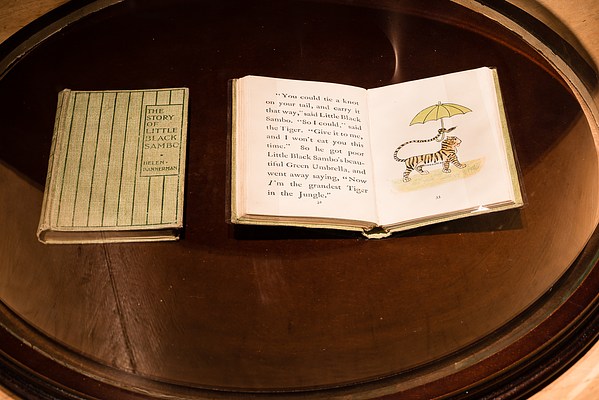 THE
STORY
OF
LITTLE
BLACK
SAMBO
HELEN
BANNERMAN
"You could tie a knot
on your tail, and carry it
that way," said Little Black
Sambo. "So I could," said
the Tiger. "Give it to me,
and I won't eat you this
time." So he got poor
Little Black Sambo's beau-
tiful Green Umbrella, and
went away saying, "Now
I'm the grandest Tiger
in the Jungle."